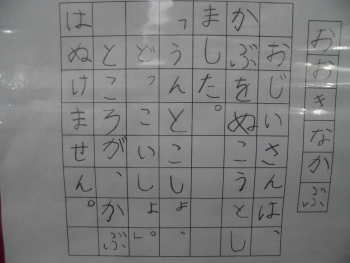 おおきなかぶ
おじいさんは、
かぶをぬこうとし
ました。
「うんとこしょ、
どっこいしょ。」
ところが、かぶ
はぬけません。